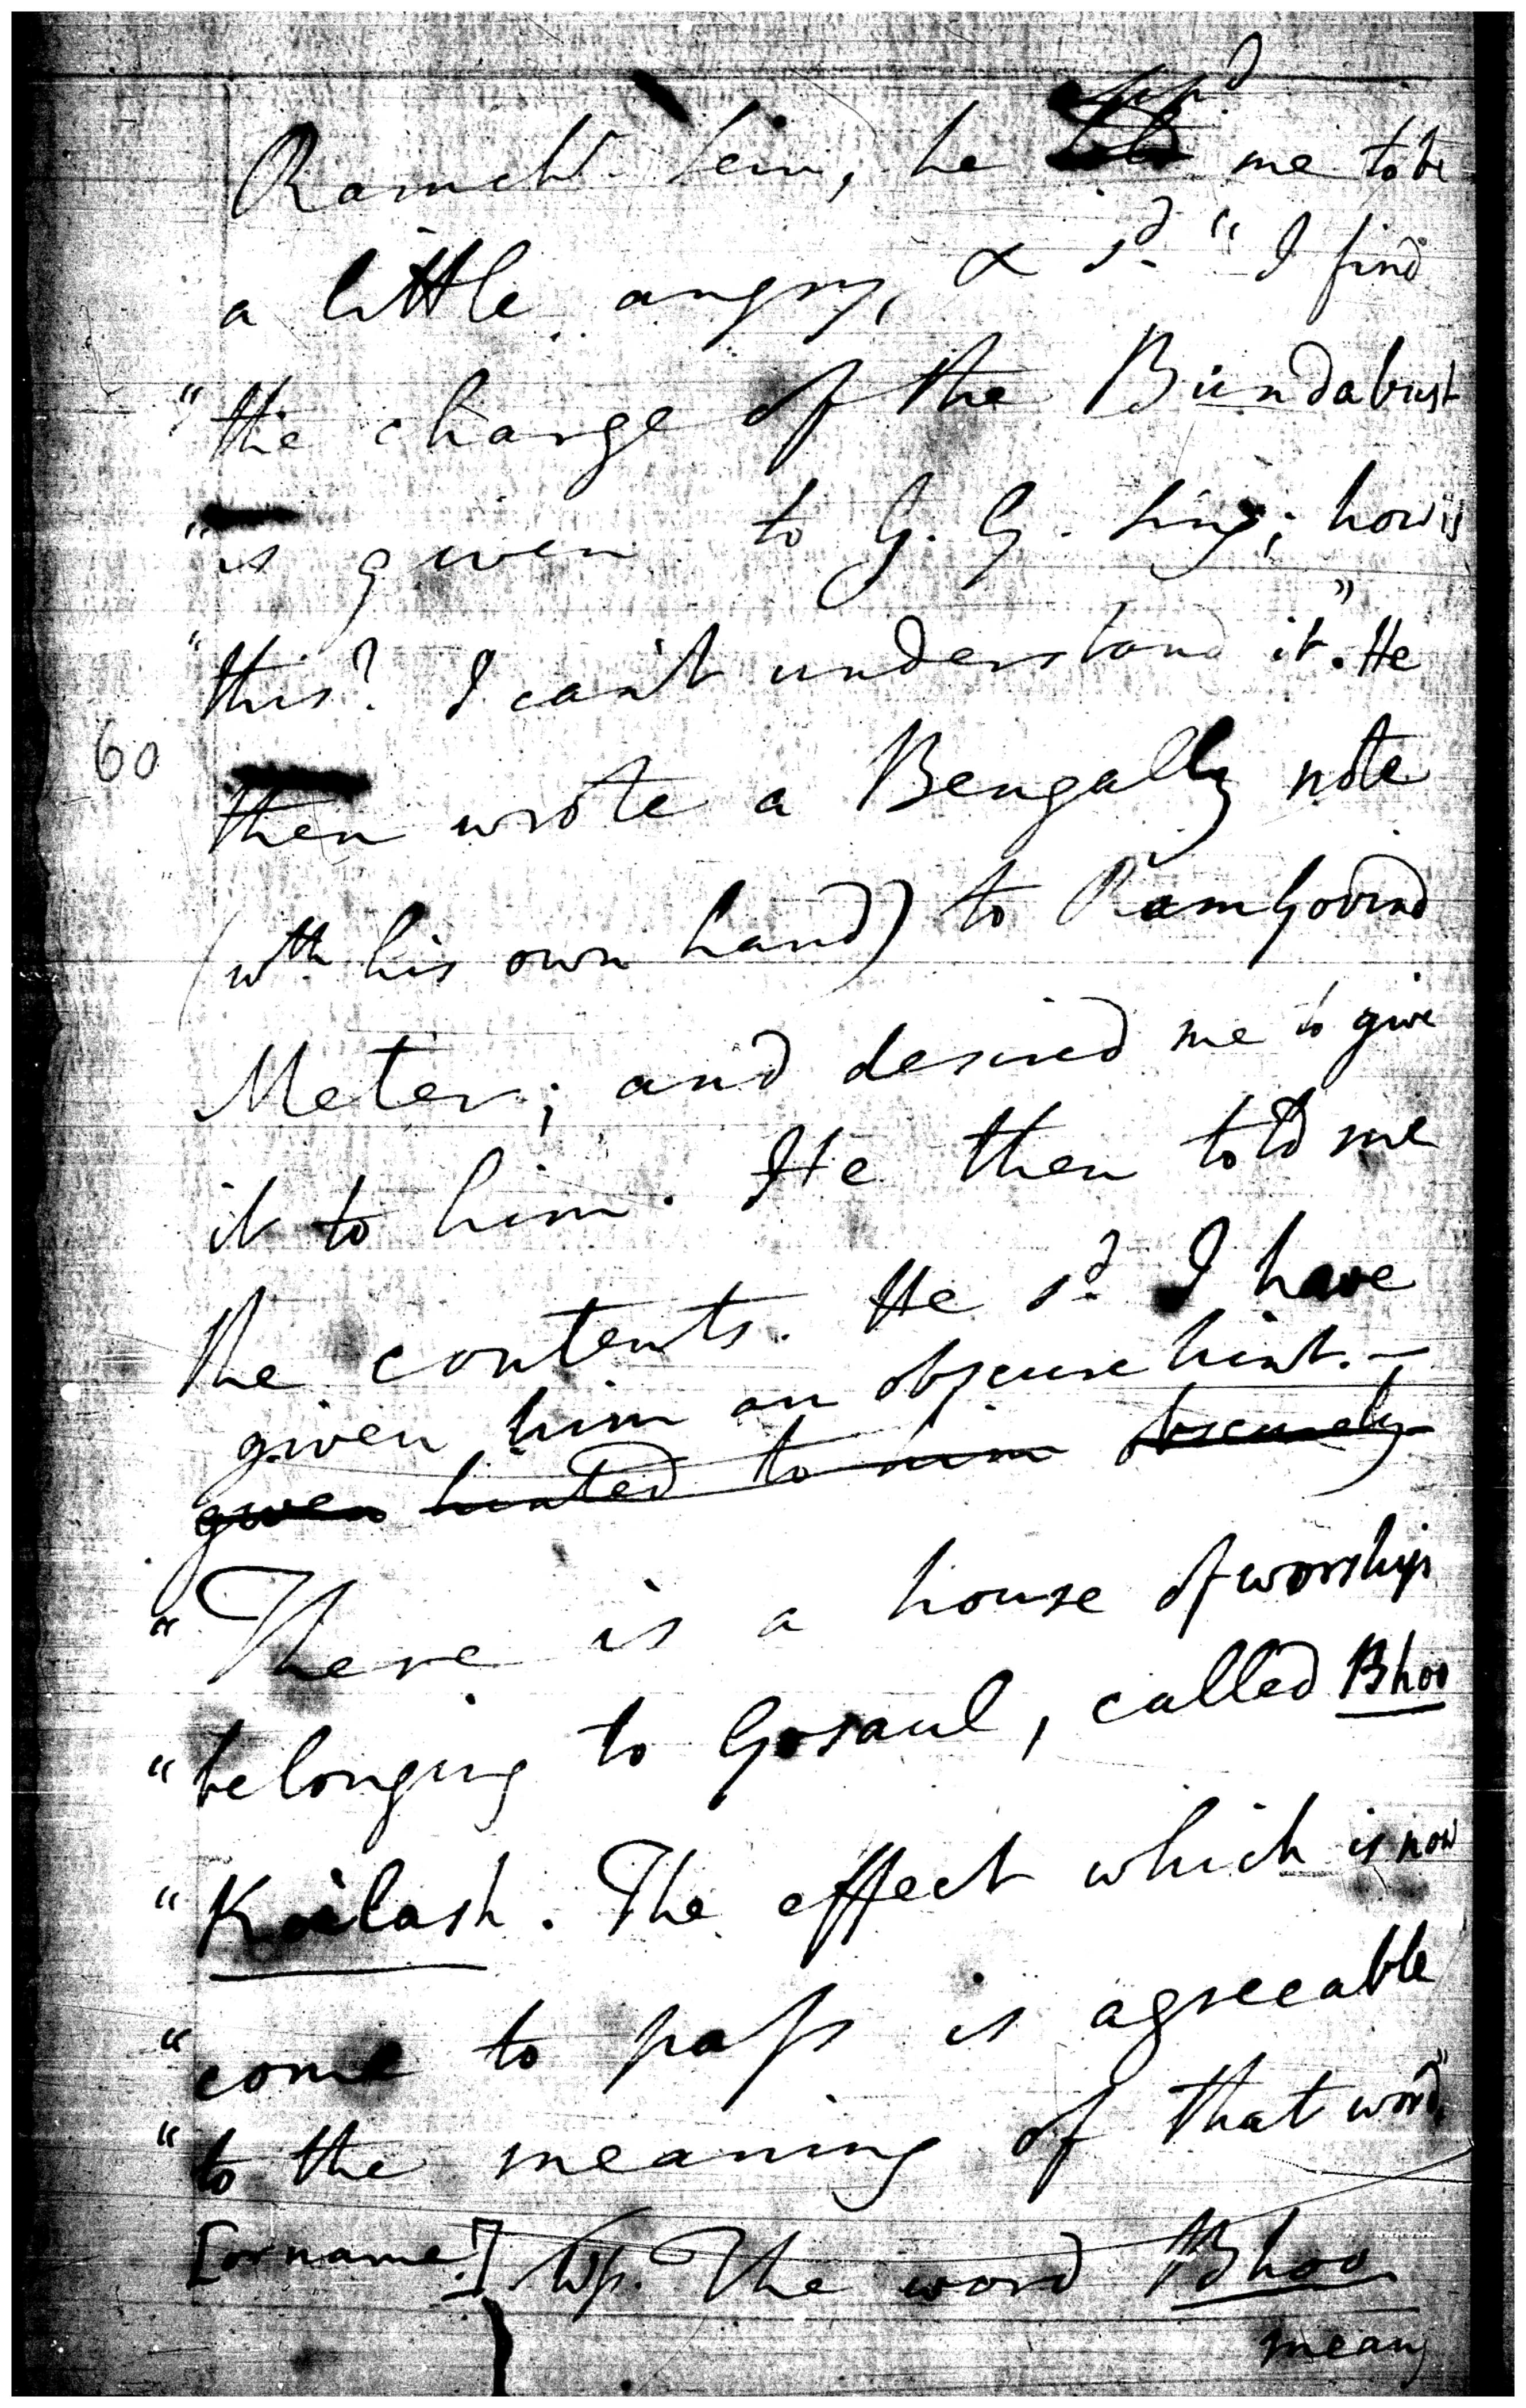 Ramch. Sein, he app.d me to be
a little angry, & s.d "I find
"the charge of the Bundabust
"is given to G. G. Sing; how is
"this? I can't understand it." He
60
then wrote a Bengally note
(wth his own hand) to RamGovind
Meter; and desired me to give
it to him. He then told me
the contents. He s.d I have
given him an obscure hint. —
given hinted to him obscurely
"There is a house of worship
"belonging to Gosaul, called Bhoo
"Koilash. The effect which is now
"come to pass is agreeable
"to the meaning of that word,"
[or name]. The word Bhoo
means